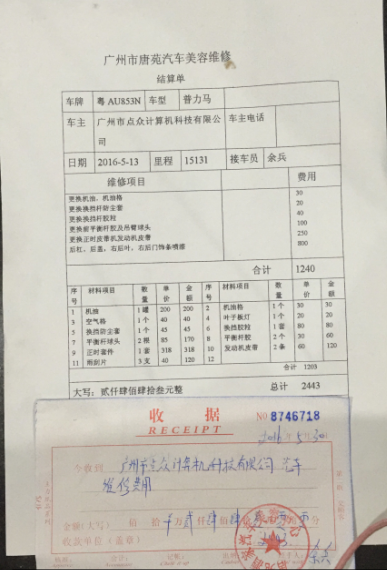 广州市唐苑汽车美容维修
结算单
车牌 粤 AU853N 车型 普力马
车主 广州市点众计算机科技有限公司 车主电话
日期 2016-5-13 里程 15131 接车员 余兵
维修项目 费用
更换机油、机油格 30
更换换挡杆防尘套 20
更换换挡杆胶粒 40
更换前平衡杆胶及吊臂球头 100
更换正时皮带机发动机皮带 250
后杠,后盖,右后叶,右后门饰条喷漆 800
合计 1240
序号 材料项目 数量 单价 金额 序号 材料项目 数量 单价 金额
1 机油 1罐 200 200 2 机油格 1个 30 30
3 空气格 1个 40 40 4 叶子板灯 1个 20 20
5 换挡防尘套 1个 45 45 6 换挡胶粒 1套 80 80
7 平衡杆球头 2根 85 170 8 平衡杆胶 2个 30
9 正时套件 1套 318 318 10 发动机皮带 2条 60 120
11 雨刮片 3支 40 120 12
合计 1203
大写:贰仟肆佰肆拾叁元整 总计 2443
收据
RECEIPT
NO 8746718
2016年5月30
今收到 广州市点众计算机科技有限公司 汽车
维修费用
金额(大写) 佰 拾 万 贰仟 肆佰
收款单位(盖章)